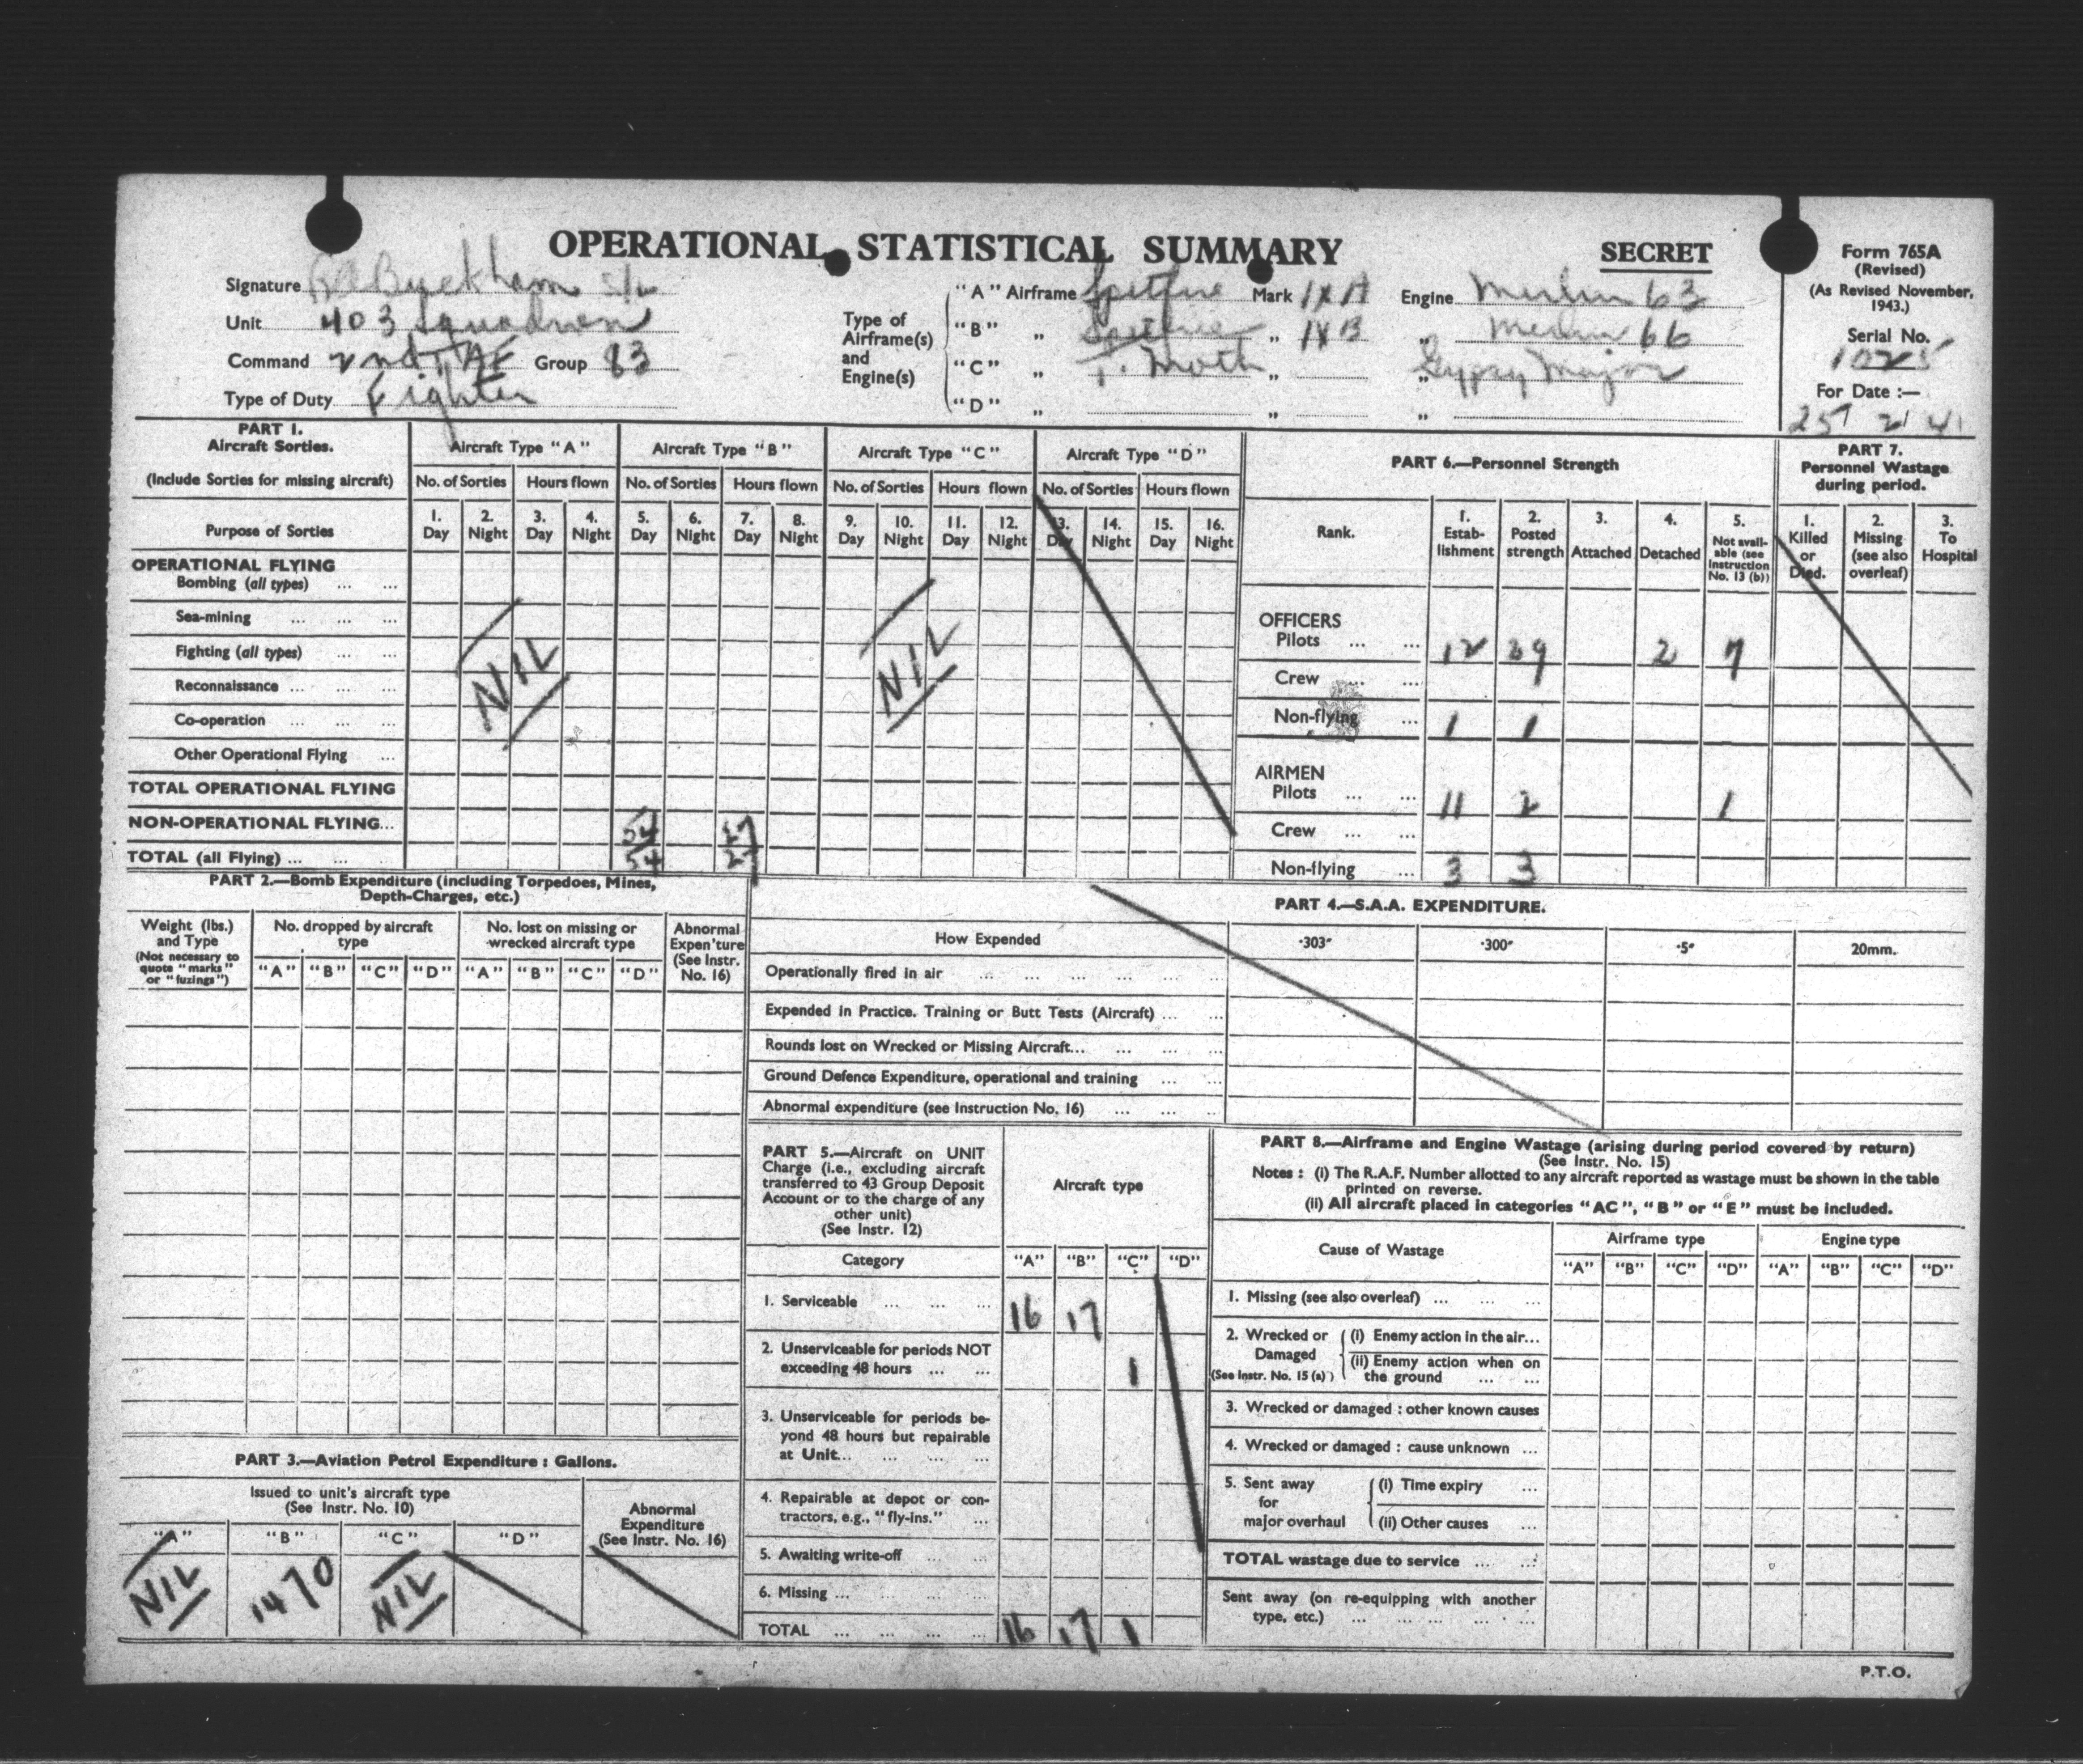 OPERATIONAL STATISTICAL SUMMARY
SECRET
Form 765A
(Revised)
(As Revised November, 1943.)
Signature RA Buckham S/L
Unit 403 Squadron
Command 2nd TAF Group 83
Type of Duty Fighter
Type of Airframe(s) and Engine(s)
"A" Airframe Spitfire Mark IX A Engine Merlin 63
"B" „ Spitfire „ IX B „ Merlin 66
"C" „ T. Moth „ „ Gypsy Major
"D" „ „ „
Serial No.
1025
For Date :—
25 2
PART 1.
Aircraft Sorties.
(Include Sorties for missing aircraft)
Purpose of Sorties
Aircraft Type "A" Aircraft Type "B" Aircraft Type "C" Aircraft Type "D"
No. of Sorties Hours flown No. of Sorties Hours flown No. of Sorties Hours flown No. of Sorties Hours flown
1. Day 2. Night 3. Day 4. Night 5. Day 6. Night 7. Day 8. Night 9. Day 10. Night 11. Day 12. Night 13. Day 14. Night 15. Day 16. Night
OPERATIONAL FLYING
Bombing (all types) ... ...
Sea-mining ... ... ...
Fighting (all types) ... ...
Reconnaissance ... ... ...
Co-operation ... ... ...
Other Operational Flying ...
NIL NIL
TOTAL OPERATIONAL FLYING
NON-OPERATIONAL FLYING... 54 27
TOTAL (all Flying) ... ... 54 27
PART 6.—Personnel Strength
Rank.
1. Estab-lishment
2. Posted strength
3. Attached
4. Detached
5. Not avail-able (see Instruction No. 13 (b))
OFFICERS
Pilots ... ... 12 29 2 7
Crew ... ...
Non-flying ... 1 1
AIRMEN
Pilots ... ... 11 2 1
Crew ... ...
Non-flying ... 3 3
PART 7.
Personnel Wastage during period.
1. Killed or Died.
2. Missing (see also overleaf)
3. To Hospital
PART 2.—Bomb Expenditure (including Torpedoes, Mines, Depth-Charges, etc.)
Weight (lbs.) and Type
(Not necessary to quote "marks" or "fuzings")
No. dropped by aircraft type
No. lost on missing or wrecked aircraft type
Abnormal Expen'ture (See Instr. No. 16)
"A" "B" "C" "D" "A" "B" "C" "D"
PART 4.—S.A.A. EXPENDITURE.
How Expended ·303″ ·300″ ·5″ 20mm.
Operationally fired in air ... ... ... ... ... ...
Expended in Practice. Training or Butt Tests (Aircraft) ... ...
Rounds lost on Wrecked or Missing Aircraft... ... ... ...
Ground Defence Expenditure, operational and training ... ...
Abnormal expenditure (see Instruction No. 16) ... ... ...
PART 3.—Aviation Petrol Expenditure : Gallons.
Issued to unit's aircraft type
(See Instr. No. 10)
Abnormal Expenditure (See Instr. No. 16)
"A" "B" "C" "D"
NIL 1470 NIL
PART 5.—Aircraft on UNIT Charge (i.e., excluding aircraft transferred to 43 Group Deposit Account or to the charge of any other unit)
(See Instr. 12)
Aircraft type
Category "A" "B" "C" "D"
1. Serviceable ... ... ... 16 17
2. Unserviceable for periods NOT exceeding 48 hours ... ... 1
3. Unserviceable for periods be-yond 48 hours but repairable at Unit... ... ... ...
4. Repairable at depot or con-tractors, e.g., "fly-ins." ...
5. Awaiting write-off ... ...
6. Missing ... ... ... ...
TOTAL ... ... ... ... 16 17 1
PART 8.—Airframe and Engine Wastage (arising during period covered by return)
(See Instr. No. 15)
Notes : (i) The R.A.F. Number allotted to any aircraft reported as wastage must be shown in the table printed on reverse.
(ii) All aircraft placed in categories "AC", "B" or "E" must be included.
Cause of Wastage
Airframe type Engine type
"A" "B" "C" "D" "A" "B" "C" "D"
1. Missing (see also overleaf) ... ... ...
2. Wrecked or Damaged (See Instr. No. 15 (a))
(i) Enemy action in the air...
(ii) Enemy action when on the ground ... ...
3. Wrecked or damaged : other known causes
4. Wrecked or damaged : cause unknown ...
5. Sent away for major overhaul
(i) Time expiry ...
(ii) Other causes ...
TOTAL wastage due to service ... ...
Sent away (on re-equipping with another type, etc.) ... ... ... ...
P.T.O.